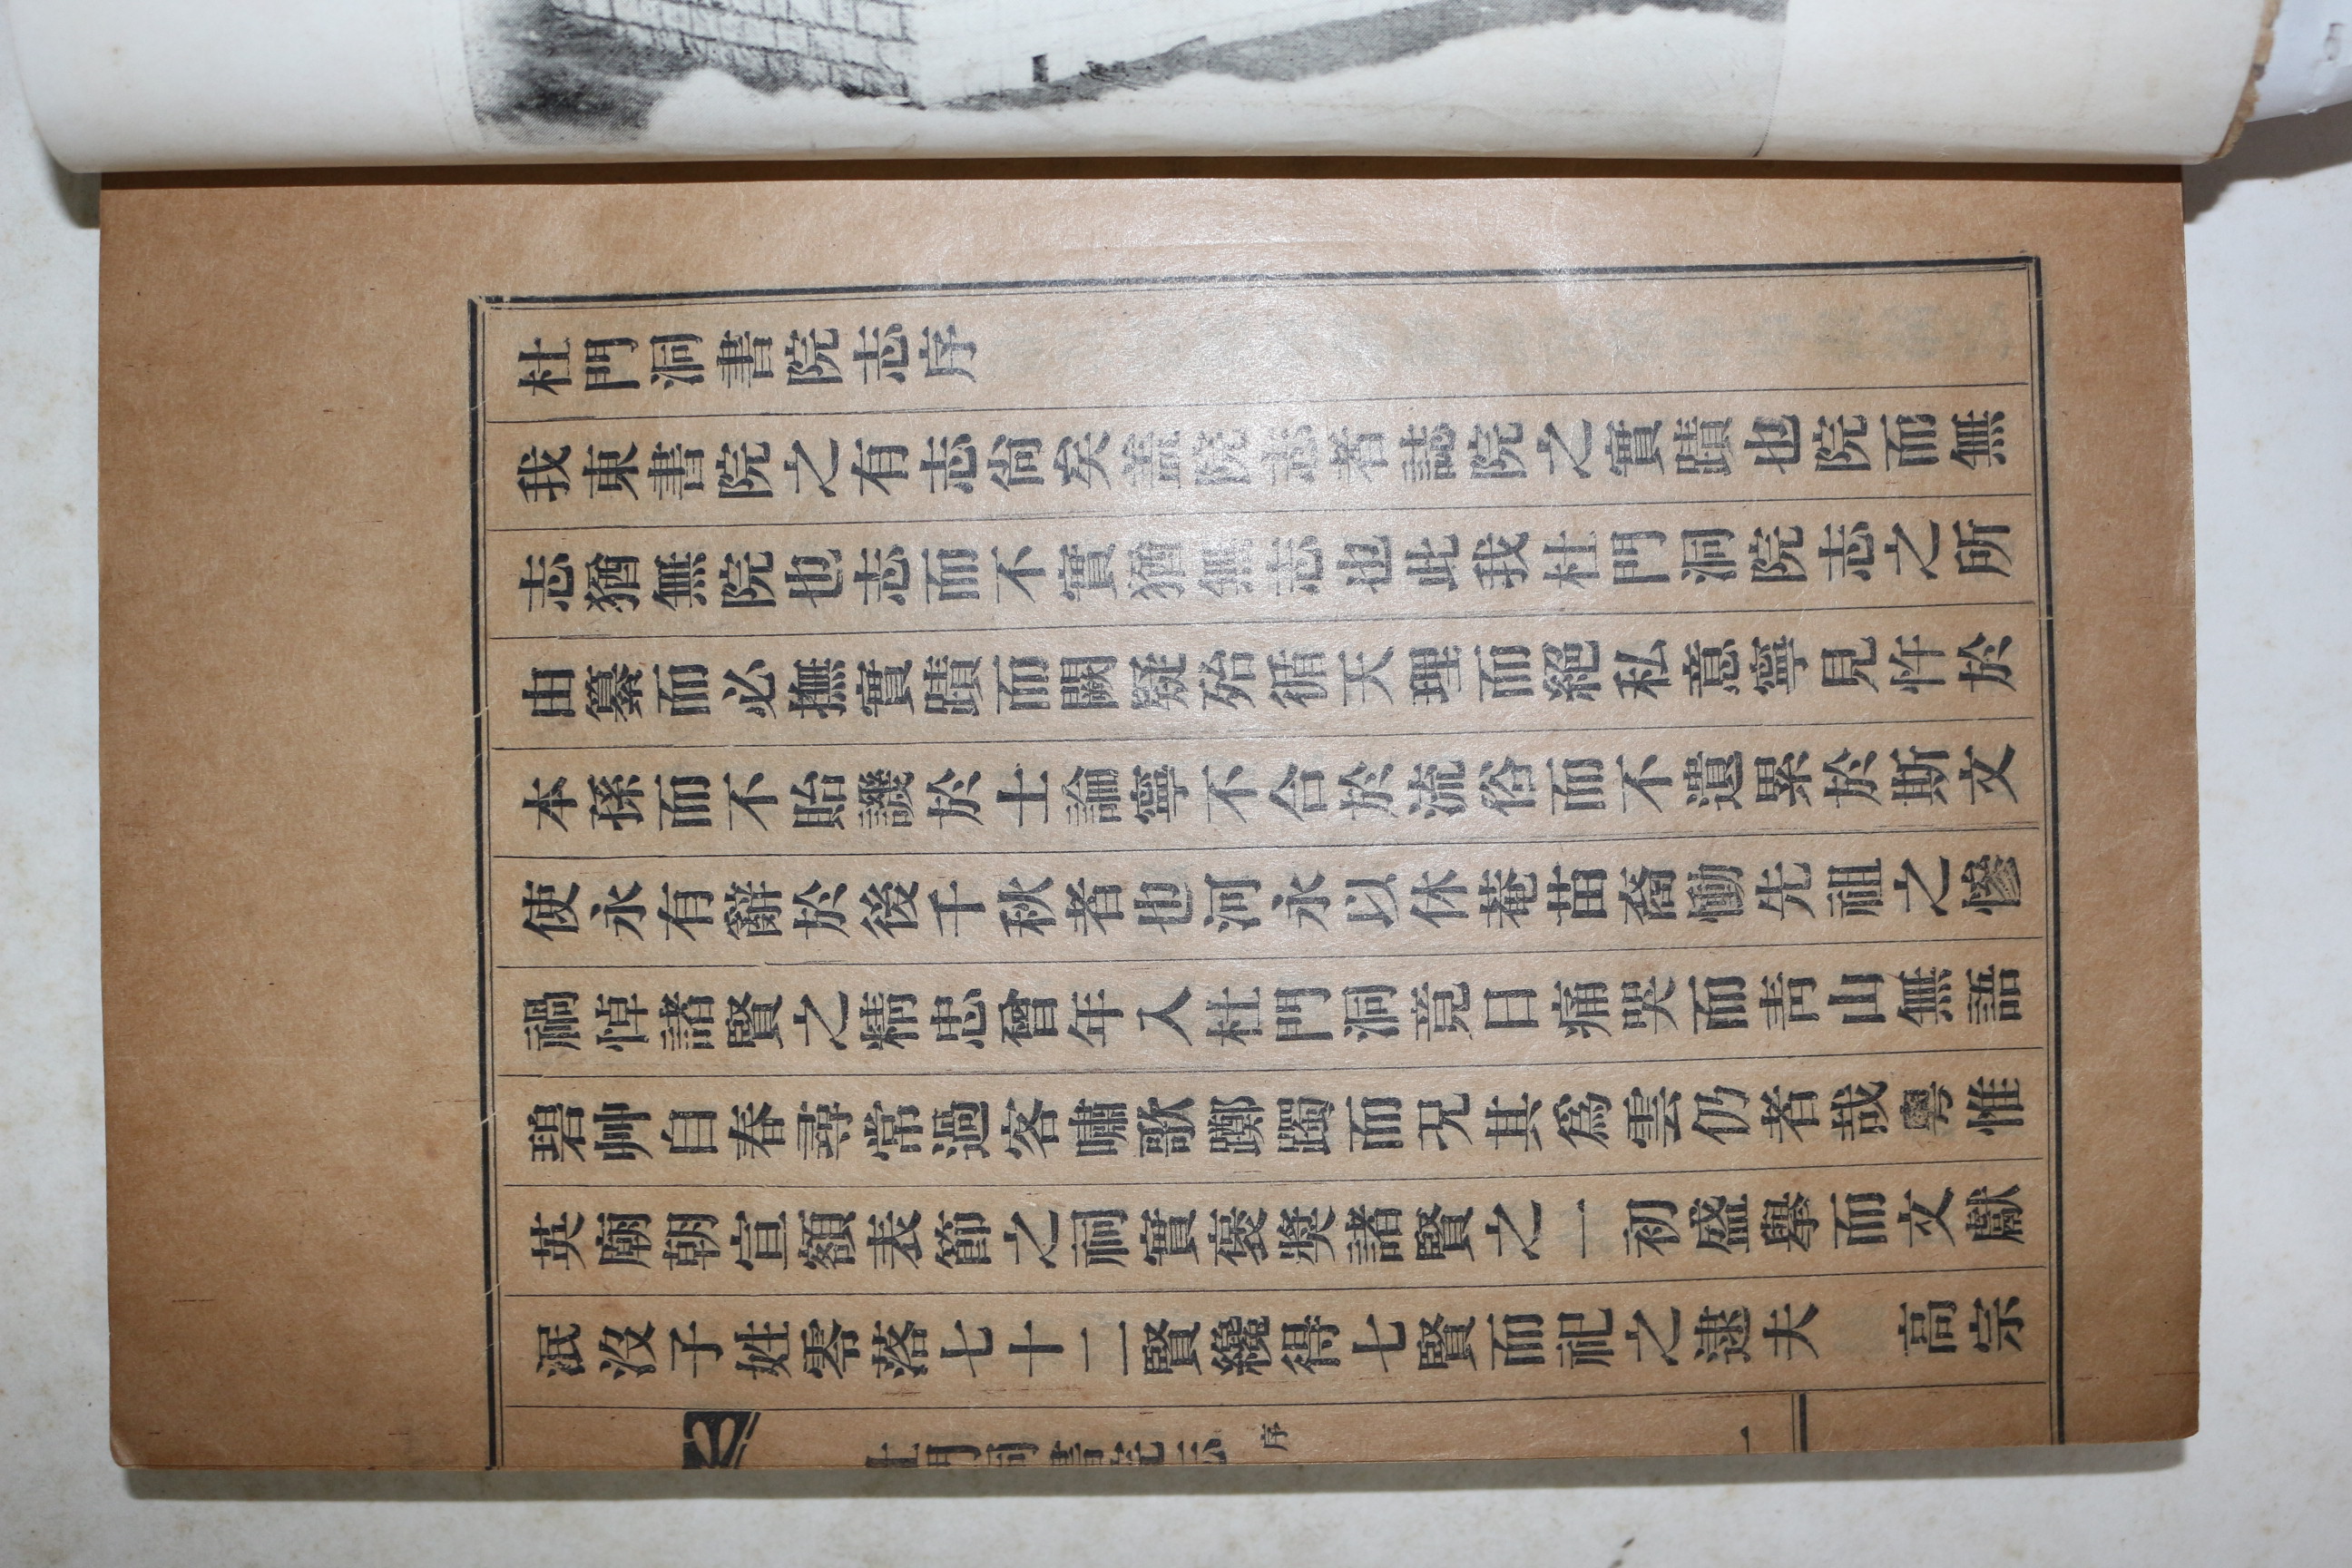 杜門洞書院志序
我東書院之有志尙矣盖院志者誌院之實蹟也院而無
志猶無院也志而不實猶無志也此我杜門洞院志之所
由纂而必撫實蹟而闕疑殆循天理而絕私意寧見忤於
本孫而不貽譏於士論寧不合於流俗而不遺累於斯文
使永有辭於後千秋者也河永以休菴苗裔慟先祖之慘
禍悼諸賢之精忠曾年入杜門洞竟日痛哭而靑山無語
碧艸自春尋常過客嘯歌躑躅而况其爲雲仍者哉粤惟
英廟朝宣額表節之祠實褒奬諸賢之一初盛擧而文獻
泯沒子姓零落七十二賢纔得七賢而祀之逮夫　高宗
杜門洞書院志 序 一